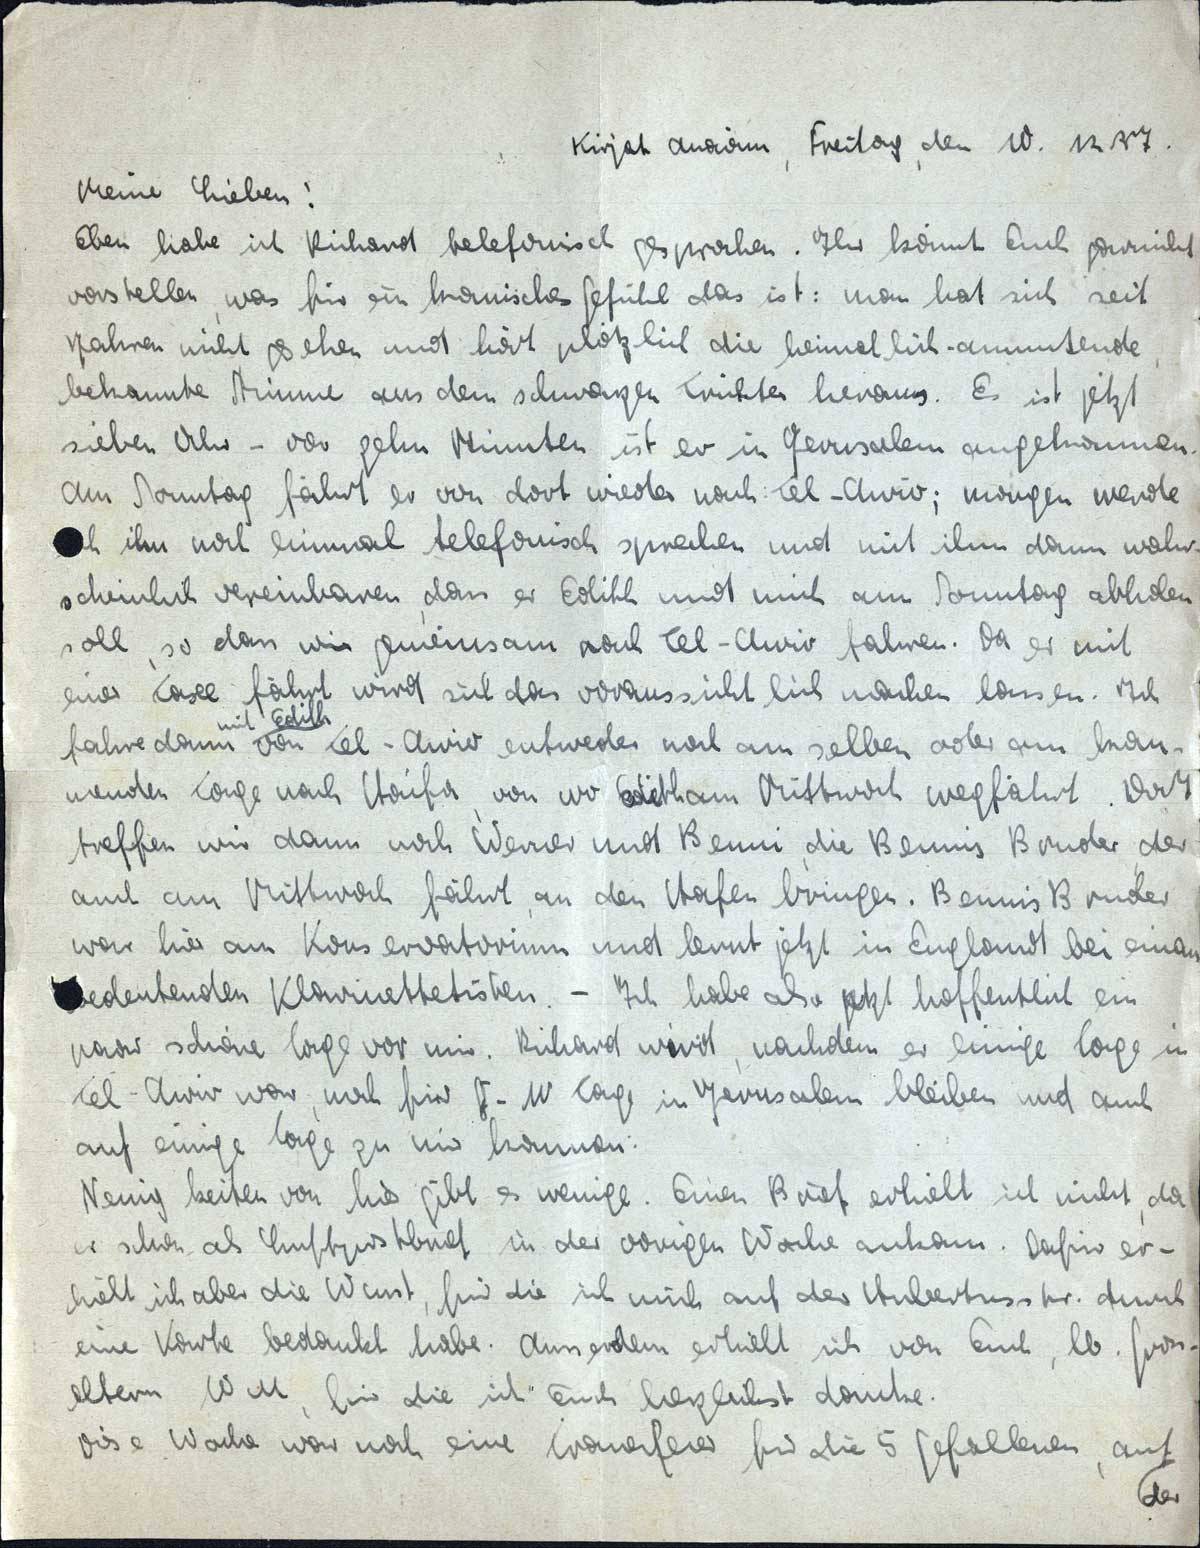 Kirjat Anavim, Freitag, den 10. 12. 37.
Meine Lieben!
Eben habe ich Richard telefonisch gesprochen. Ihr könnt Euch garnicht
vorstellen, was für ein komisches Gefühl das ist: man hat sich seit
Jahren nicht gesehen und hört plötzlich die heimatlich-anmutende,
bekannte Stimme aus dem schwarzen Trichter heraus. Es ist jetzt
sieben Uhr – vor zehn Minuten ist er in Jerusalem angekommen.
Am Sonntag fährt er von dort wieder nach Tel-Awiv; morgen werde
ch ihn noch einmal telefonisch sprechen und mit ihm dann wahr-
scheinlich vereinbaren, dass er Edith und mich am Sonntag abholen
soll, so dass wir gemeinsam nach Tel-Awiv fahren. Da er mit
einer Taxe fährt wird sich das voraussichtlich machen lassen. Ich
fahre dann mit Edith von Tel-Awiv entweder noch am selben oder am kom-
menden Tage nach Haifa, von wo Edith am Mittwoch wegfährt. Dort
treffen wir dann noch Werner und Benni, die Bennis Bruder, der
auch am Mittwoch fährt, an den Hafen bringen. Bennis Bruder
war hier am Konservatorium und lernt jetzt in England bei einem
bedeutenden Klarinettetisten. – Ich habe also jetzt hoffentlich ein
paar schöne Tage vor mir. Richard wird, nachdem er einige Tage in
Tel-Awiv war, noch für 8-10 Tage in Jerusalem bleiben und auch
auf einige Tage zu mir kommen.
Neuigkeiten von hier gibt es wenige. Einen Brief erhielt ich nicht, da
er schon als Luftpostbrief in der vorigen Woche ankam. Dafür er-
hielt ich aber die Wurst, für die ich mich auf der Hubertusstr. durch
eine Karte bedankt habe. Ausserdem erhielt ich von Euch, lb. Gross-
eltern W M, für die ich Euch herzlichst danke.
Diese Woche war noch eine Trauerfeier für die 5 Gefallenen, auf
der